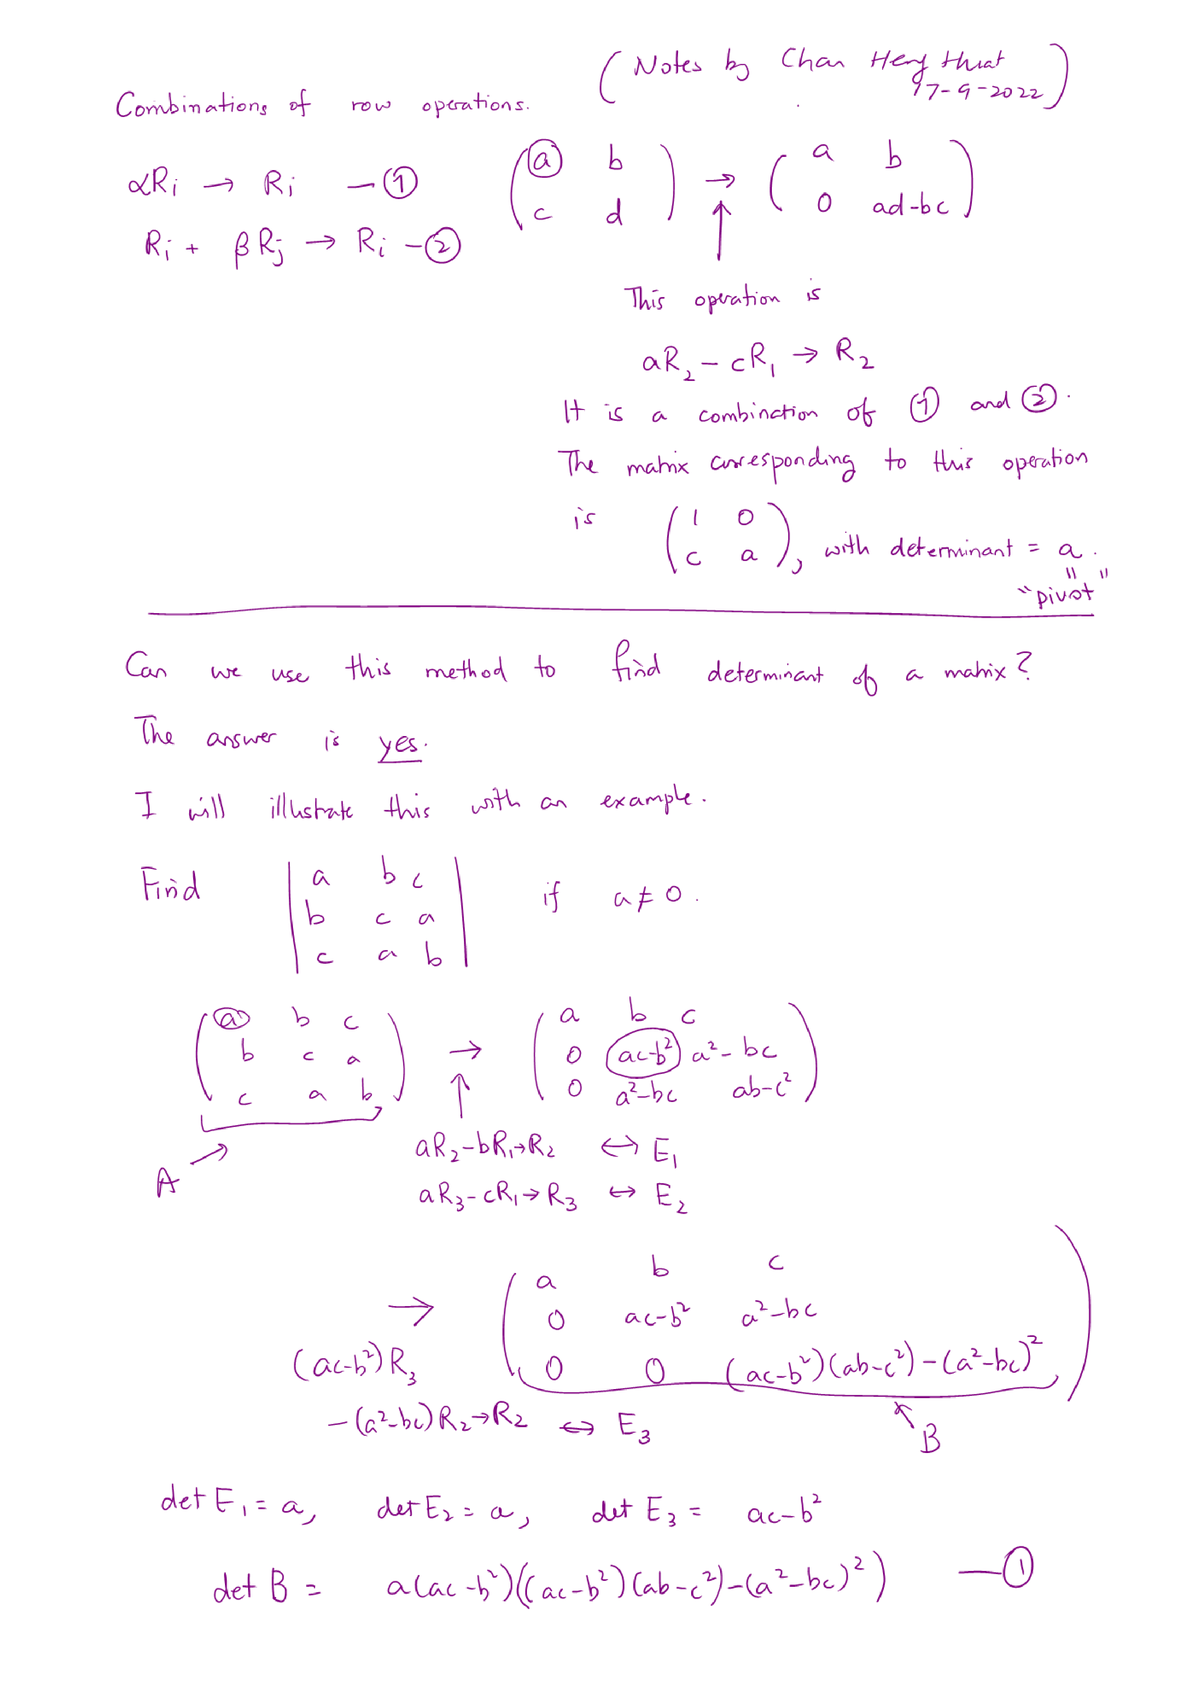 (Notes by Chan Heng Huat
17-9-2022)
Combinations of row operations.
αRi → Ri — ①
Ri + βRj → Ri — ②
( a b ) → ( a b )
( c d ) ( 0 ad-bc )
↑
This operation is
aR₂ - cR₁ → R₂
It is a combination of ① and ②.
The matrix corresponding to this operation
is ( 1 0 )
( c a ), with determinant = a.
"
"pivot"
Can we use this method to find determinant of a matrix?
The answer is yes.
I will illustrate this with an example.
Find | a b c |
| b c a | if a ≠ 0.
| c a b |
( a b c ) → ( a b c )
( b c a ) ( 0 ac-b² a²-bc )
( c a b ) ( 0 a²-bc ab-c² )
A ↑
aR₂-bR₁→R₂ ↔ E₁
aR₃-cR₁→R₃ ↔ E₂
→ ( a b c )
( 0 ac-b² a²-bc )
( 0 0 (ac-b²)(ab-c²)-(a²-bc)² )
(ac-b²)R₃
-(a²-bc)R₂→R₂ ↔ E₃
B
det E₁ = a, det E₂ = a, det E₃ = ac-b²
det B = a(ac-b²)((ac-b²)(ab-c²)-(a²-bc)²) — ①